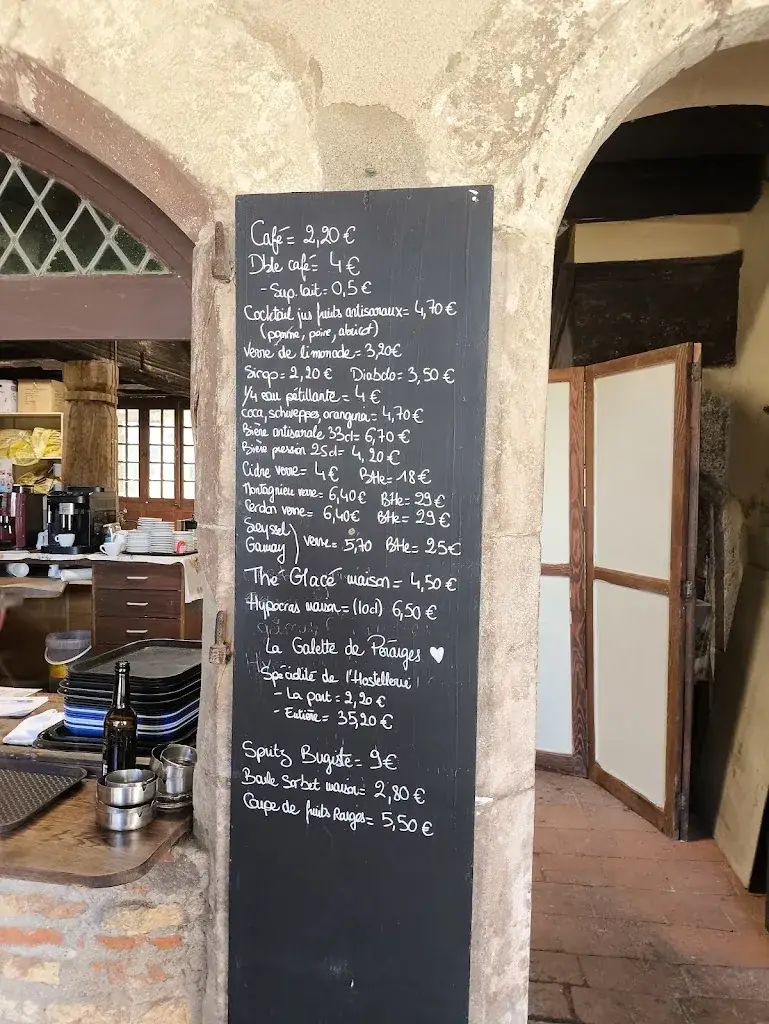 Café = 2,20 €
Dble café = 4 €
- Sup. lait = 0,5 €
Cocktail jus fruits artisanaux = 4,70 €
(pomme, poire, abricot)
Verre de limonade = 3,20€
Sirop = 2,20 € Diabolo = 3,50 €
1/4 eau pétillante = 4 €
coca, schweppes, orangina = 4,70 €
Bière artisanale 33cl = 6,70 €
Bière pression 25cl = 4,20 €
Cidre verre = 4€ Btle = 18 €
Montagnieu verre = 6,40€ Btle = 29 €
Cerdon verre = 6,40€ Btle = 29 €
Seyssel
Gamay ) verre = 5,70 Btle = 25€
Thé Glacé maison = 4,50 €
Hypocras maison = (10cl) 6,50 €
La Galette de Pérouges ♥
Spécialité de l'Hostellerie
- La part = 2,20 €
- Entière = 35,20 €
Spritz Bugiste = 9€
Boule Sorbet maison = 2,80 €
Coupe de fruits Rouges = 5,50 €